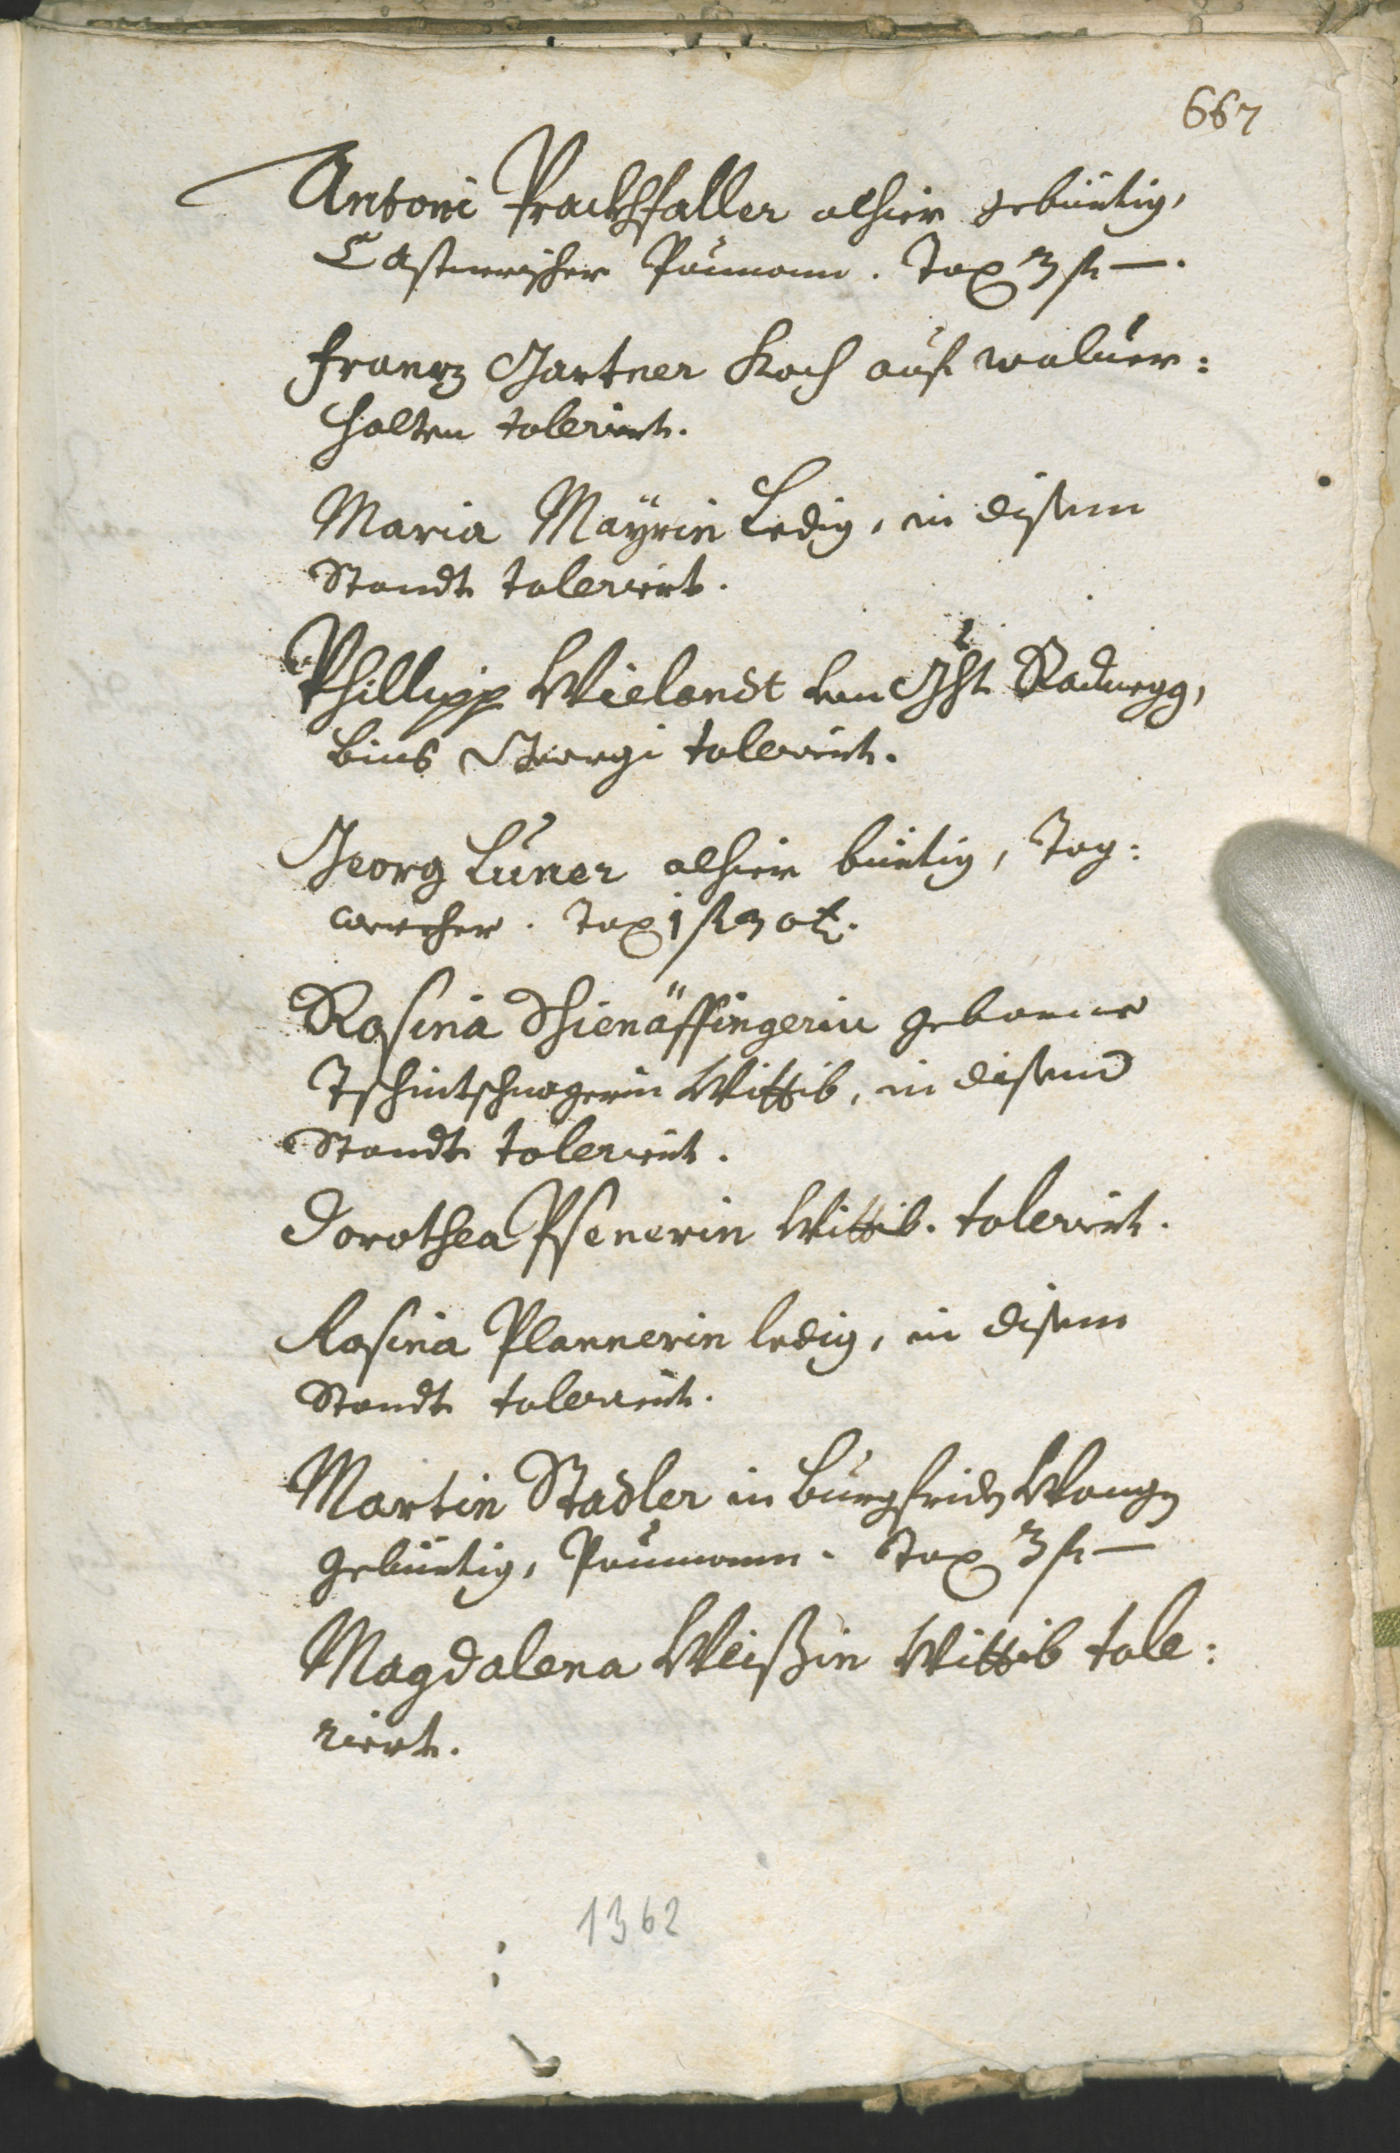 667
Antoni Prackhfaller alhier gebürtig,
Castnerischer Paumann. Tax 3 fl —.
Frantz Gartner Koch auf wolver:
halten tolerirt.
Maria Maÿrin Ledig, in disem
Standt tolerirt.
Phillipp Wielandt von Ght Rodnegg,
bis Georgi tolerirt.
Georg Luner alhier bürtig, Tag:
wercher. Tax 1 fl 30 x.
Rosina Thienäffingerin geborne
Tschintschnagerin Wittib, in disem
Standt tolerirt.
Dorothea Psenerin Wittib. tolerirt.
Rosina Plannerin ledig, in disem
Standt tolerirt.
Martin Stadler in Burgfridn Wangn
gebürtig, Paumann. Tax 3 fl —
Magdalena Weißin Wittib tole:
riert.
1362